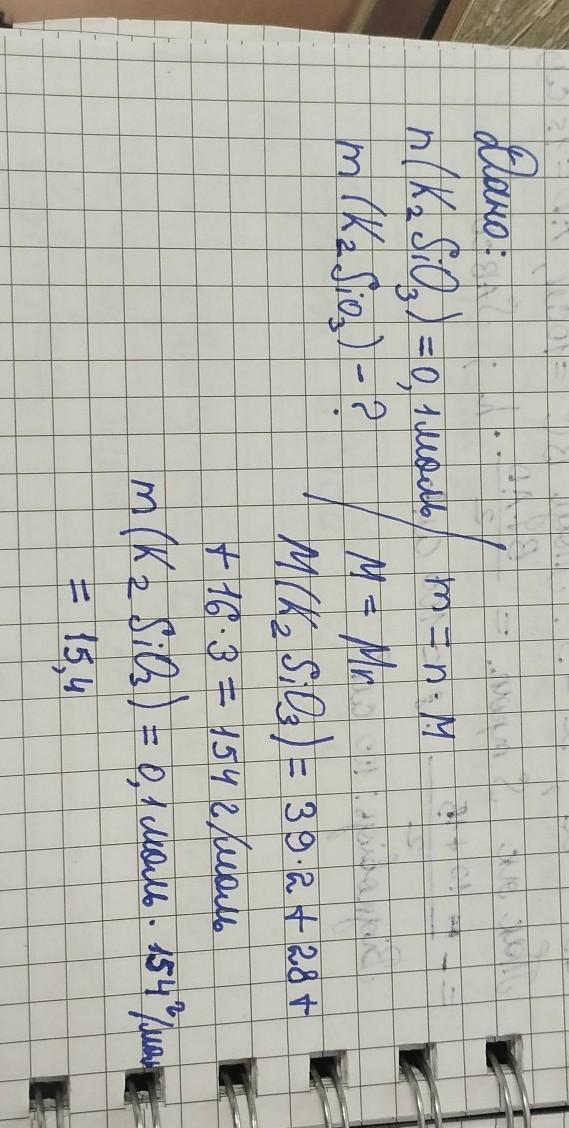 Дано:
n(K₂SiO₃) = 0,1 моль
m(K₂SiO₃) - ?
m = n · M
M = Mr
M(K₂SiO₃) = 39·2 + 28 +
+ 16·3 = 154 г/моль
m(K₂SiO₃) = 0,1 моль · 154 г/мол
= 15,4